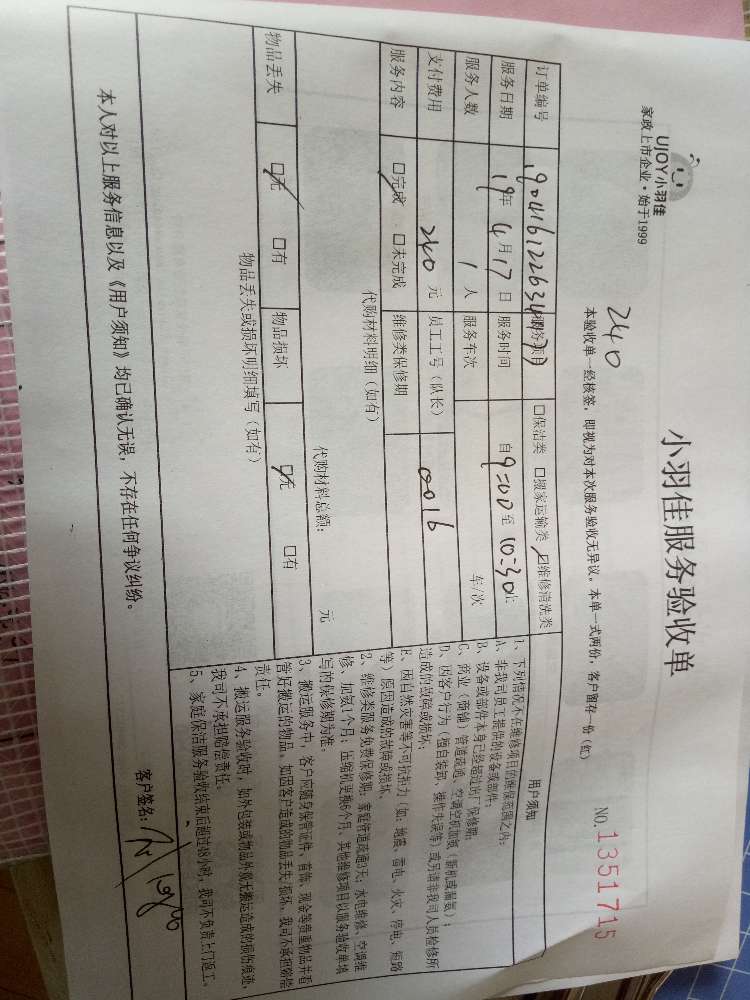 UJOY小羽佳
家政上市企业·始于1999
小羽佳服务验收单
NO.1351715
240
本验收单一经核签，即视为对本次服务验收无异议。本单一式两份，客户留存一份（红）
订单编号 190416122634473 服务项目 □保洁类 □搬家运输类 ☑维修清洗类
服务日期 19年4月17日 服务时间 自9:00至10:30止
服务人数 1人 服务车次 车/次
支付费用 240元 员工工号（队长） 0016
服务内容 ☑完成 □未完成 维修类保修期
代购材料明细（如有）
代购材料总额： 元
物品丢失 ☑无 □有 物品损坏 ☑无 □有
物品丢失或损坏明细填写（如有）
用户须知
1、下列情况不在维修项目的保修范围之内：
A、非我司员工提供的设备或部件；
B、设备或部件本身已经超过出厂保修期；
C、商业（商铺）管道疏通，空调空机加氨（新机或漏氨）；
D、因客户行为（擅自装卸、操作失误等）或另请非我司人员检修所
造成的故障或损坏，
E、因自然灾害等不可抗拒力（如：地震、雷电、火灾、停电、短路
等）原因造成的故障或损坏。
2、维修类服务免费保修期：家庭管道疏通3天；水电维修、空调维
修、加氨1个月；压缩机更换6个月、其他维修项目以服务验收单填
写的保修期为准。
3、搬运服务中，客户应随身保管证件、首饰、现金等贵重物品并看
管好搬运的物品。如因客户造成的物品丢失/损坏，我司不承担赔偿
责任。
4、搬运服务验收时，如外包装或物品外观无搬运造成的损伤痕迹，
我司不承担赔偿责任。
5、家庭保洁服务验收结束后超过48小时，我司不负责上门返工。
本人对以上服务信息以及《用户须知》均已确认无误，不存在任何争议纠纷。
客户签名：